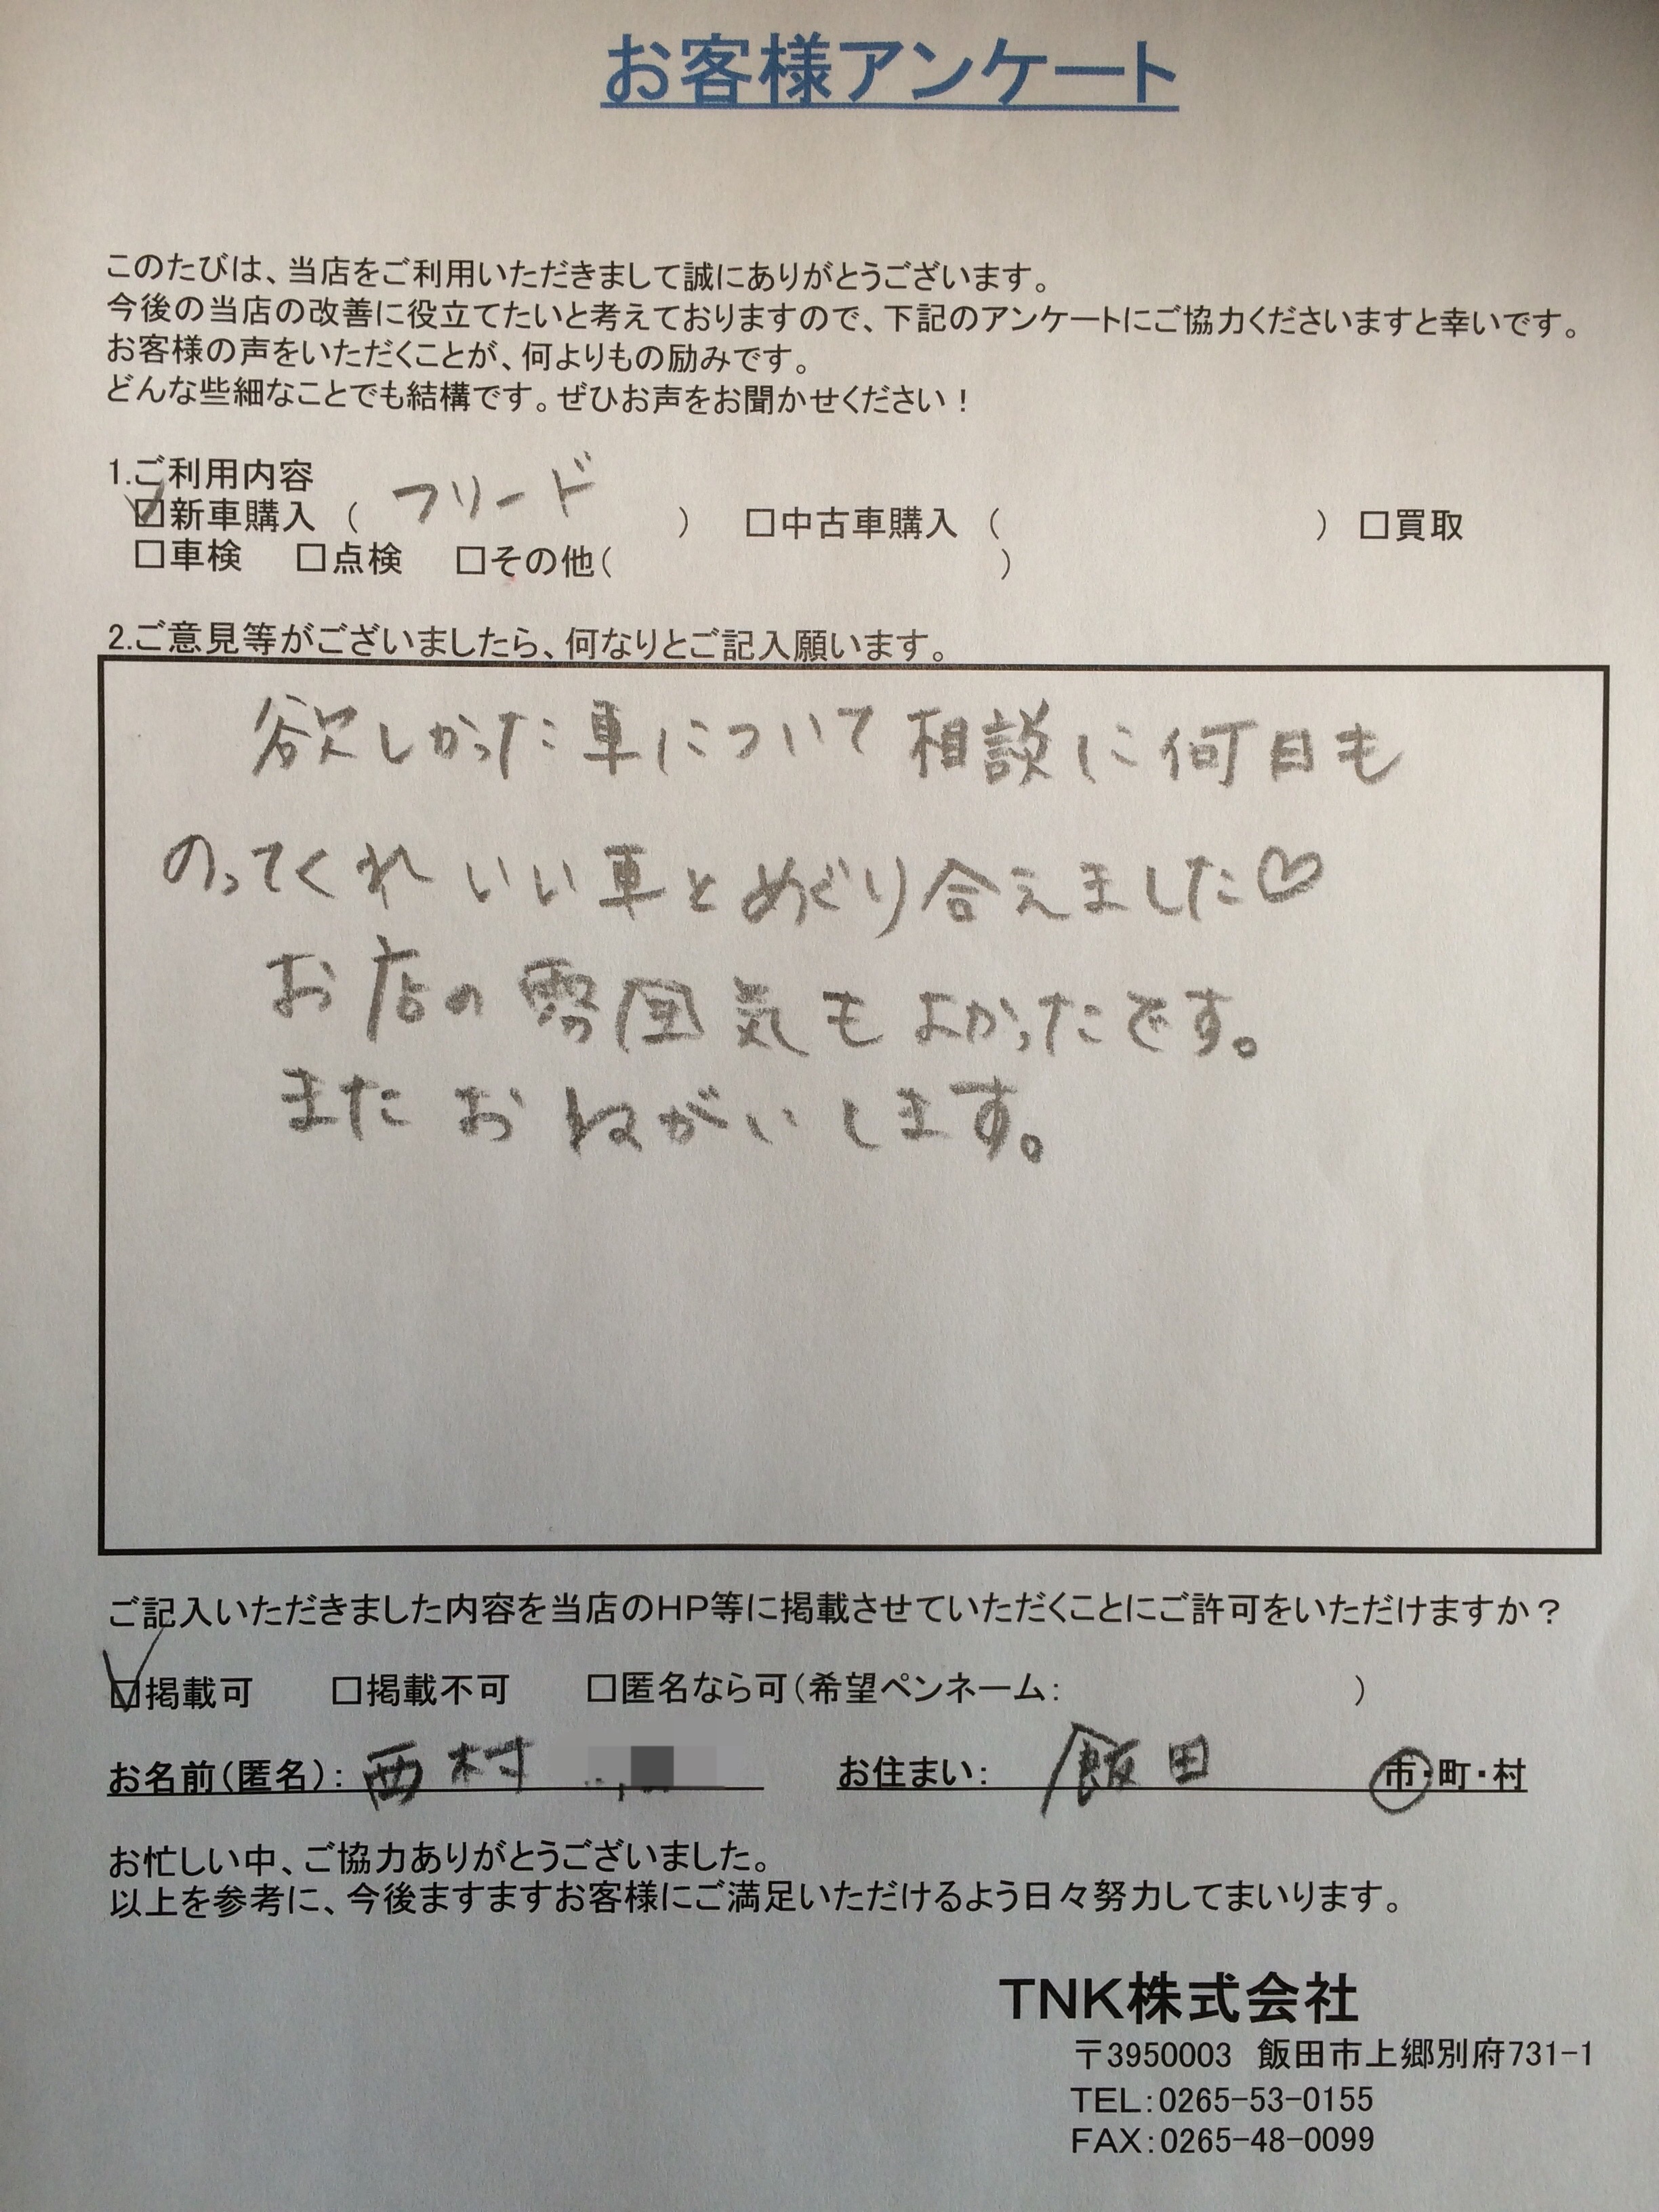 お客様アンケート
このたびは、当店をご利用いただきまして誠にありがとうございます。
今後の当店の改善に役立てたいと考えておりますので、下記のアンケートにご協力くださいますと幸いです。
お客様の声をいただくことが、何よりもの励みです。
どんな些細なことでも結構です。ぜひお声をお聞かせください！
1.ご利用内容
☑新車購入 （ フリード ） □中古車購入 （ ） □買取
□車検 □点検 □その他（ ）
2.ご意見等がございましたら、何なりとご記入願います。
欲しかった車について相談に何日も
のってくれいい車とめぐり合えました♡
お店の雰囲気もよかったです。
またおねがいします。
ご記入いただきました内容を当店のHP等に掲載させていただくことにご許可をいただけますか？
☑掲載可 □掲載不可 □匿名なら可（希望ペンネーム： ）
お名前（匿名）： 西村 お住まい： 飯田 市・町・村
お忙しい中、ご協力ありがとうございました。
以上を参考に、今後ますますお客様にご満足いただけるよう日々努力してまいります。
TNK株式会社
〒3950003 飯田市上郷別府731-1
TEL：0265-53-0155
FAX：0265-48-0099